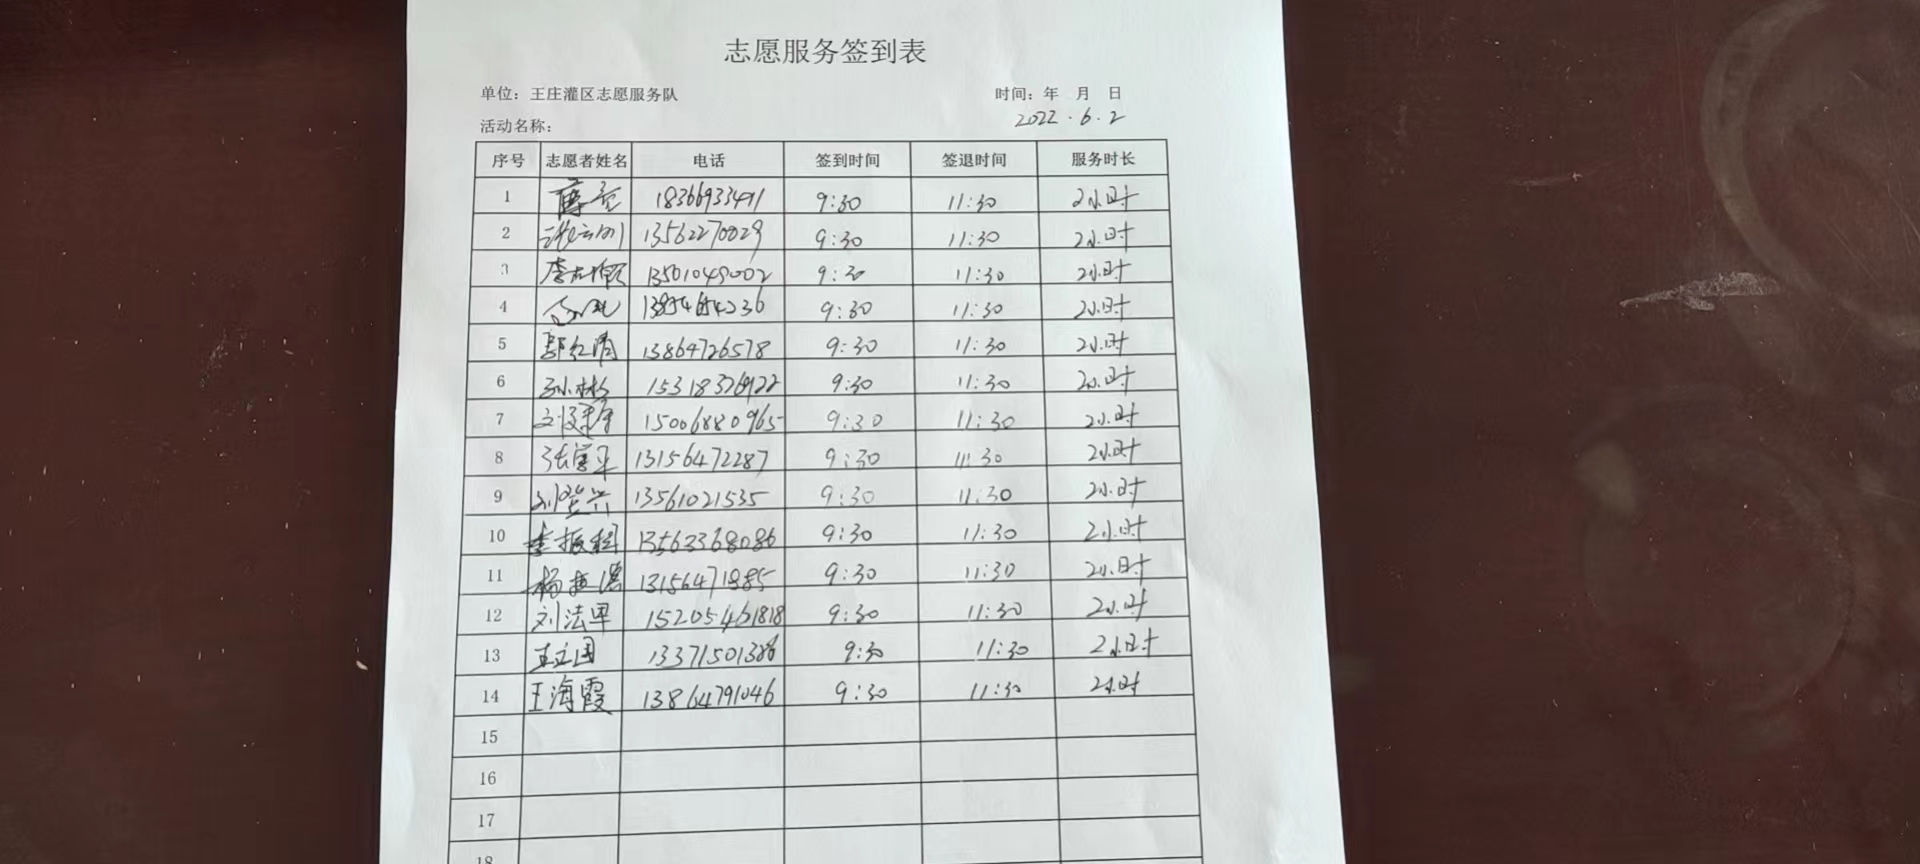 志愿服务签到表
单位：王庄灌区志愿服务队 时间：年 月 日
2022.6.2
活动名称：
序号 志愿者姓名 电话 签到时间 签退时间 服务时长
1 18366933491 9:30 11:30 2小时
2 13562270029 9:30 11:30 2小时
3 13501049002 9:30 11:30 2小时
4 9:30 11:30 2小时
5 郭红清 13864726578 9:30 11:30 2小时
6 孙彬 15318376922 9:30 11:30 2小时
7 15006880965 9:30 11:30 2小时
8 13156472287 9:30 11:30 2小时
9 13561021535 9:30 11:30 2小时
10 李振 13563368086 9:30 11:30 2小时
11 杨 9:30 11:30 2小时
12 刘法军 15205461818 9:30 11:30 2小时
13 王立国 13371501386 9:30 11:30 2小时
14 王海霞 13864791046 9:30 11:30 2小时
15
16
17
18